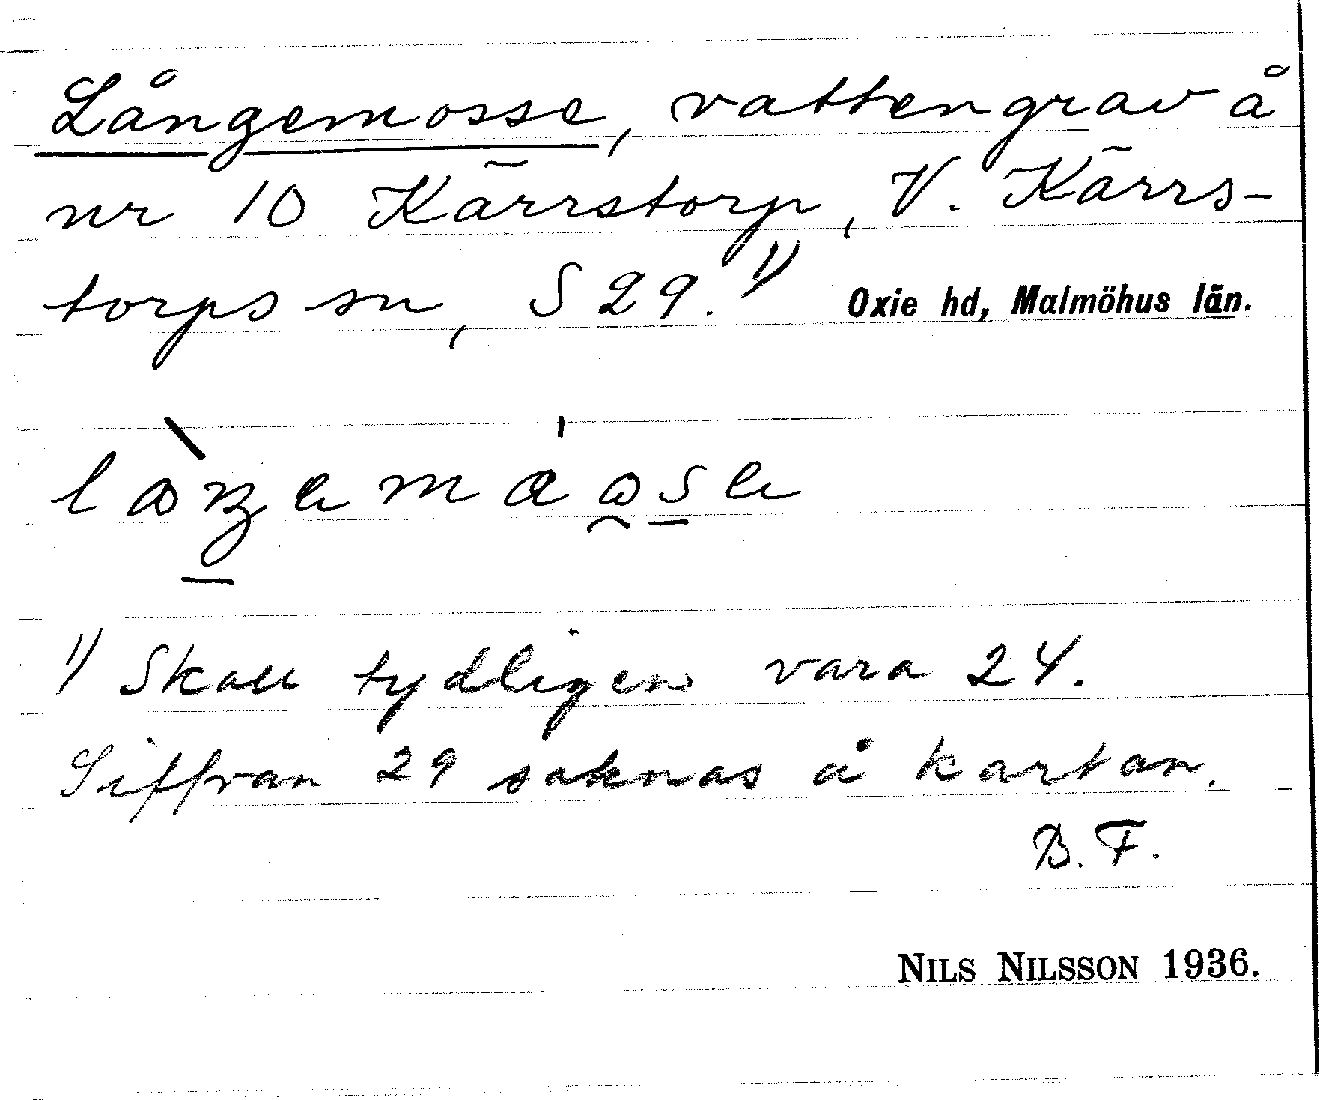 Långemosse, vattengrav å
nr 10 Kärrstorp, V. Kärrs-
torps sn, S 29. 1) Oxie hd, Malmöhus län.
1) Skall tydligen vara 24.
Siffran 29 saknas å kartan.
B. F.
NILS NILSSON 1936.